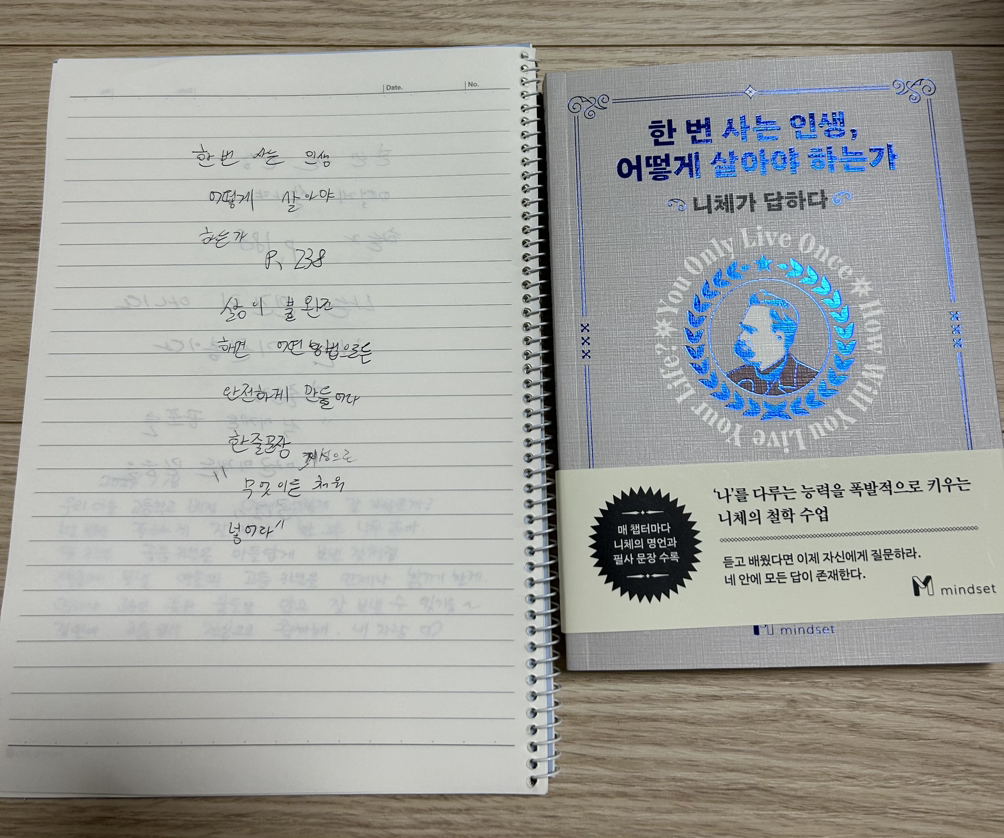 Date.
No.
한 번 사는 인생
어떻게 살아야
하는가
P. 238
삶이 불완전
하면 어떤 방법으로든
완전하게 만들어라
한줄문장
"무엇이든 정성으로 채워
넣어라"
한 번 사는 인생,
어떻게 살아야 하는가
니체가 답하다
You Only Live Once
How Will You Live Your Life?
매 챕터마다
니체의 명언과
필사 문장 수록
'나'를 다루는 능력을 폭발적으로 키우는
니체의 철학 수업
듣고 배웠다면 이제 자신에게 질문하라.
네 안에 모든 답이 존재한다.
mindset
mindset